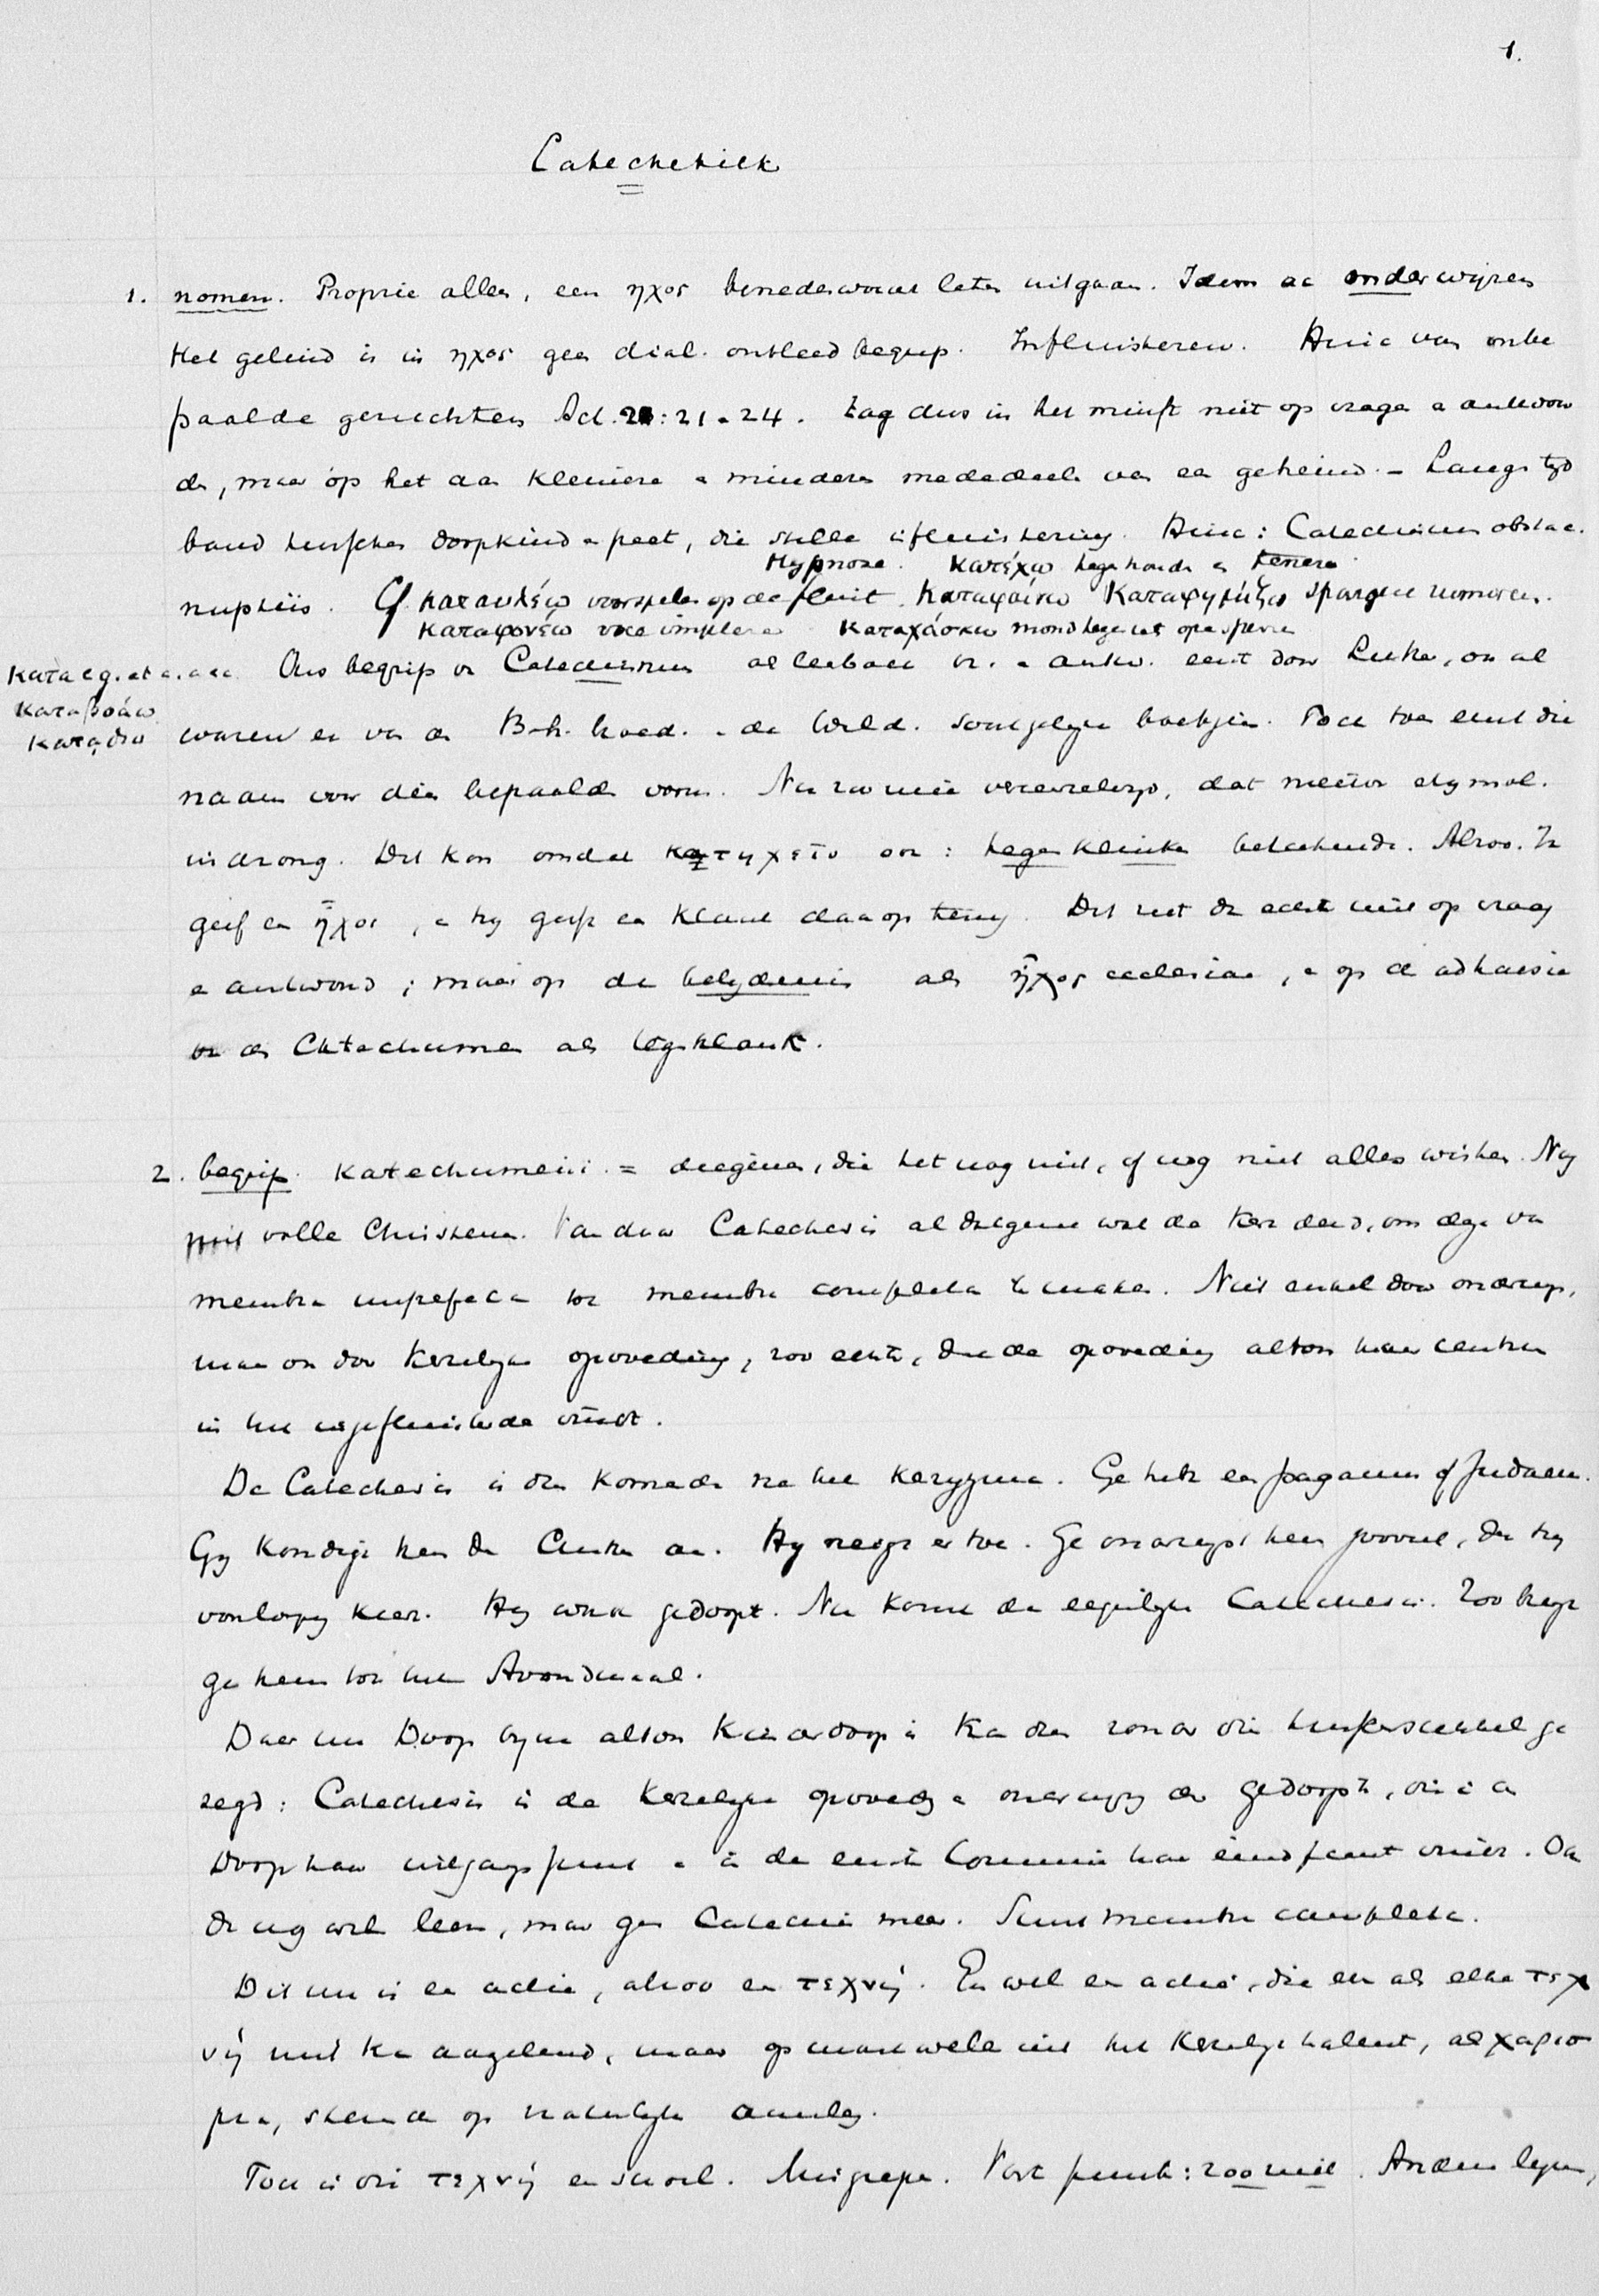 1.
Catechetiek
1. nomen. Proprie alleen, een ηχος benedenwaart laten uitgaan. Idem ac onderwijzen
Het geluid is in ηχος geen dial. ontleed begrip. Influisteren. Hinc van onbe
paalde geruchten Act. 21:21 - 24. Lag dus in het minst niet op vragen a antwoor
de, maar op het aan kleinere a mindere mededeelen van een geheim. – Langs tijd
band tusschen doopkind a peet, die stille influistering. Hinc: Catechismus obstac.
Hypnose. Κατέχω tegenhouden en tenere
nuptiis. Cf. καταυλέω voorspelen op de fluit. Καταφαίνω Καταφημίζω spargere rumores.
Καταφονέω voce implere Καταχάσκω mond tegen iets opensperren
Κατα c.g. et a. acc. Ons begrip v. Catechismus als leerboek vr. a antw. eerst door Luther, ook al
Καταβοάω
Κατᾳδω waren er van de Boh. broed. a de Wald. soortgelijke boekjes. Toch toen eerst die
naam voor dien bepaalden vorm. Nu zoo niet verwerelijk, dat meteen etymol.
indrong. Dit kon omdat κατηχεῖν ook: tegenklinken beteekende. Alzoo. Ik
geef een ἦχος, a hij geeft een klank daarop terug. Dit ziet dan echter niet op vraag
a antwoord; maar op de belijdenis als ἦχος ecclesiae, a op de adhaesie
v. de Catechumen als tegenklank.
2. begrip. Katechumeni = diegenen, die het nog niet, of nog niet alles wisten. Nog
niet volle Christenen. Vandaar Catechesis al datgene wat de Kerk deed, om deze van
membra imperfecta tot membra completa te maken. Niet enkel door onderwijs,
maar ook door Kerkelijke opvoeding, zoo echter, dat de opvoeding altoos haar centrum
in het ingefluisterde vindt.
De Catechesis is dan komende na het Kerygma. Ge hebt een paganus of Judaeus.
Gij kondigt hem den Christus aan. Hij neigt er toe. Ge onderwijst hem zooveel, dat hij
voorloopig keer. Hij wordt gedoopt. Nu komt de eigenlijke Catechesis. Zoo krijgt
ge hem tot het Avondmaal.
Daar nu Doop bijna altoos Kinderdoop is kan dan zonder die tusschenschakel ge
zegd: Catechesis is de Kerkelijke opvoeding a onderwijzing der gedoopten, die in den
Doop haar uitgangspunt a in de eerste Communie haar eindpunt vindt. Ook
dan nog wel leeren, maar geen Catechese meer. Sunt membra completa.
Dit nu is een actie, alzoo een τεχνή. En wel een actie, die en als elke τεχ
νή niet kan aangeleerd, maar opwaart welt uit het Kerkelijk talent, als χαρισ
μα, steunende op natuurlijken aanleg.
Toch is die τεχνή en school. Misgrepen. Vast punt: zoo niet. Andere lijnen,